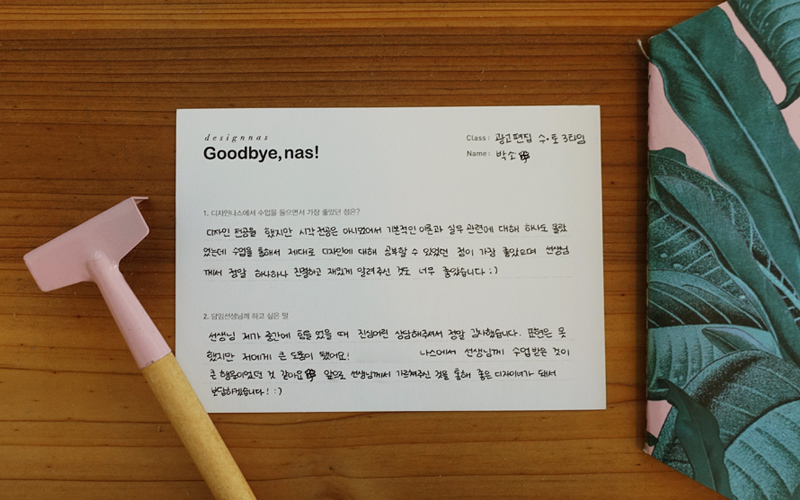 designnas
Goodbye, nas!
Class : 광고편집 수·토 3타임
Name : 박소
1. 디자인나스에서 수업을 들으면서 가장 좋았던 점은?
디자인 전공을 했지만 시각전공은 아니였어서 기본적인 이론과 실무 관련에 대해 하나도 몰랐
었는데 수업을 통해서 제대로 디자인에 대해 공부할 수 있었던 점이 가장 좋았으며 선생님
께서 정말 하나하나 친절하고 재밌게 알려주신 것도 너무 좋았습니다 :)
2. 담임선생님께 하고 싶은 말
선생님 제가 중간에 힘들었을 때 진심어린 상담해주셔서 정말 감사했습니다. 표현은 못
했지만 저에게 큰 도움이 됐어요! 나스에서 선생님께 수업 받은 것이
큰 행운이였던 것 같아요 앞으로 선생님께서 가르쳐주신 것을 통해 좋은 디자이너가 돼서
보답하겠습니다! :)